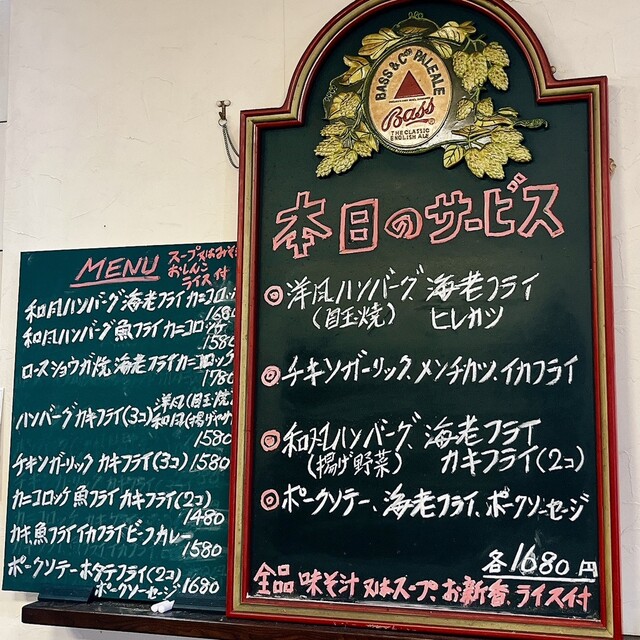 MENU スープ又はみそ
おしんこ
ライス付
和風ハンバーグ 海老フライ カニコロッ
1680
和風ハンバーグ 魚フライ カニコロッケ
1580
ロースショウガ焼 海老フライ カニコロック
1780
ハンバーグ カキフライ(3コ) 洋風(目玉焼)
和風(揚げヤサ
1580
チキンガーリック カキフライ(3コ) 1580
カニコロッケ 魚フライ カキフライ(2コ)
1480
カキ、魚フライ イカフライ ビーフカレー
1580
ポークソテー ホタテフライ(2コ)
ポークソーセージ 1680
BASS & Co's PALE ALE
Bass
THE CLASSIC
ENGLISH ALE
本日のサービス
◎ 洋風ハンバーグ、海老フライ
(目玉焼) ヒレカツ
◎ チキンガーリック、メンチカツ、イカフライ
◎ 和風ハンバーグ、海老フライ
(揚げ野菜) カキフライ(2コ)
◎ ポークソテー、海老フライ、ポークソーセージ
各1680円
全品 味噌汁 又はスープ、お新香、ライス付